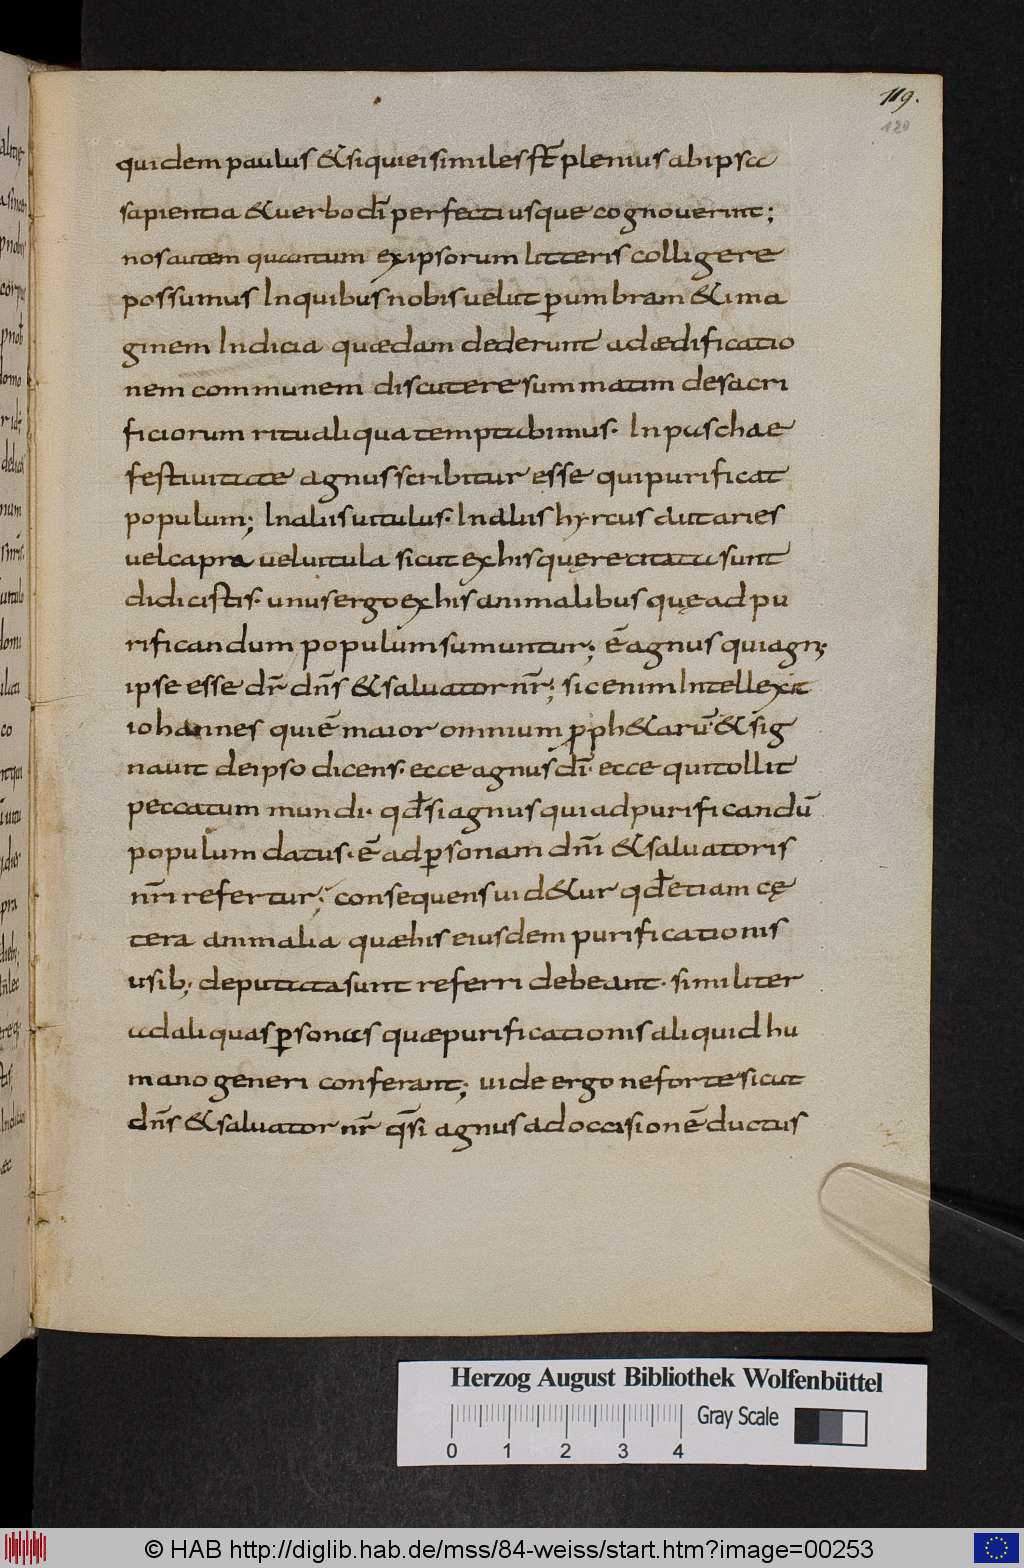 119.
120
quidem paulus & siqui ei similes st̄ plenius ab ipsa
sapientia & uerbo dī perfecti usque cognouerint;
nos autem quantum ex ipsorum litteris colligere
possumus In quibus nobis uelut p̱ umbram & ima
ginem Indicia quædam dederunt ad ædificatio
nem communem discutere summatim de sacri
ficiorum ritu aliqua temptabimus. In paschae
festiuitate agnus scribitur esse qui purificat
populum; In aliis uitulus. In aliis hyrcus aut aries
uel capra uel uitula sicut ex his quę recitata sunt
didicistis. unus ergo ex his animalibus quę ad pu
rificandum populum sumuntur; ē agnus qui agn;
ipse esse dr̄ dn̄s & saluator nr̄; sic enim Intellexit
iohannes qui ē maior omnium pro̱ph&arū. & sig
nauit de ipso dicens. ecce agnus dī. ecce qui tollit
peccatum mundi. qđ si agnus qui ad purificandū
populum datus. ē ad p̱sonam dn̄i & saluatoris
nr̄i refertur; consequens uid&ur qđ etiam cę
tera animalia quæ his eiusdem purificationis
usib; deputata sunt referri debeant. similiter
ad aliquas p̱sonas quæ purificationis aliquid hu
mano generi conferant; uide ergo ne forte sicut
dn̄s & saluator nr̄ q̄si agnus ad occisionē ductus
Herzog August Bibliothek Wolfenbüttel
Gray Scale
0 1 2 3 4
© HAB http://diglib.hab.de/mss/84-weiss/start.htm?image=00253